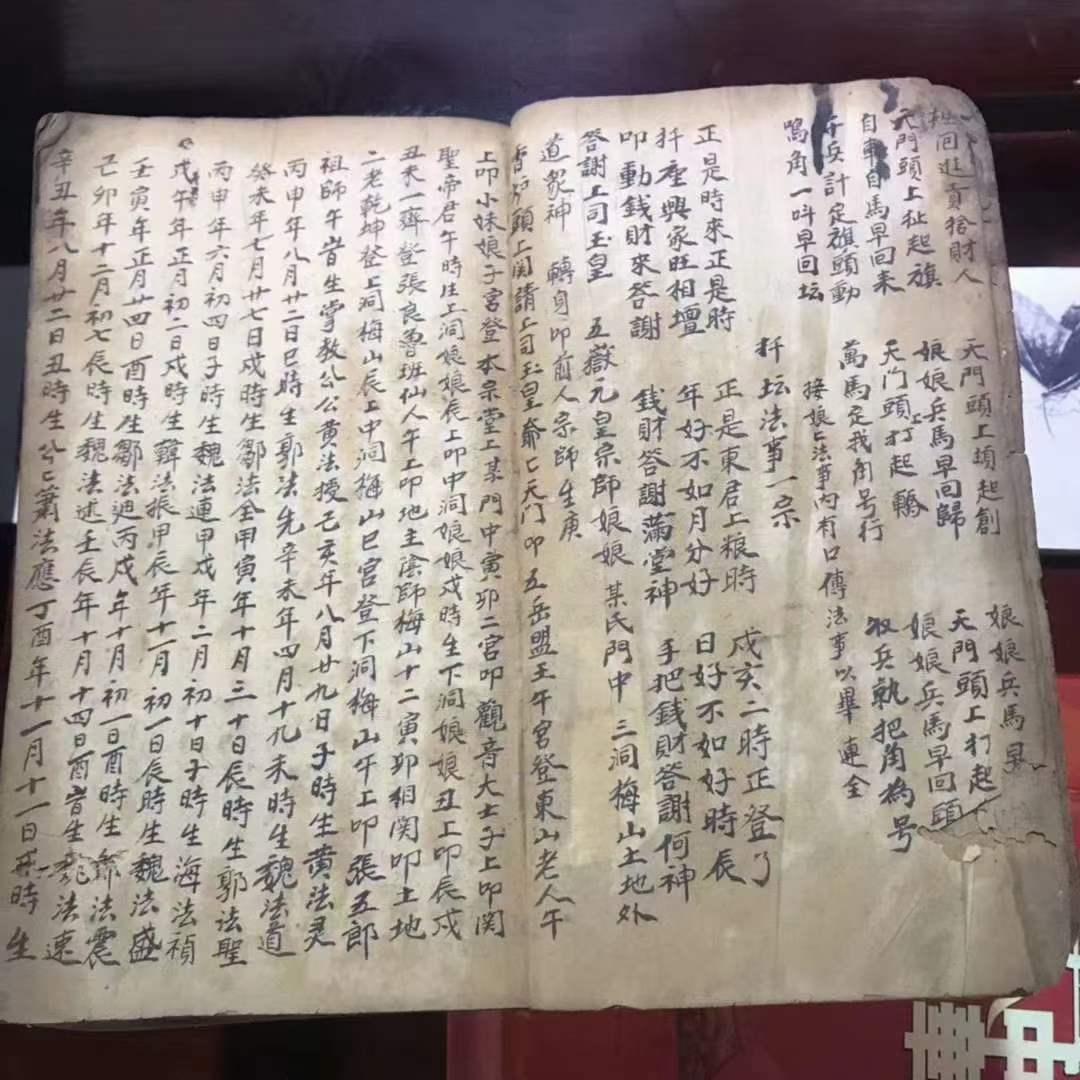 回進貢捨財人
天門頭上扯起旗 天門頭上頭起劍 娘娘兵馬早
自轉自馬早回来 娘娘兵馬早回歸 天門頭上打起
千兵計定旗頭動 天门頭上打起轎 娘娘兵馬早回頭
鳴角一呌早回坛 萬馬走我角号行 收兵執把角為号
接娘〻法事内有口傳法事以畢連全
扦坛法事一宗
正是時來正是時 正是東君上粮時 戍亥二時正登了
扦座興家旺相壇 年好不如月分好 日好不如好時辰
叩動錢財來答謝 錢財答謝滿堂神 手把錢財答謝何神
答謝上司玉皇 五嶽元皇宗師娘娘 某氏門中 三洞梅山土地外
道眾神 轉身叩前人宗師生庚
頭上関請上司玉皇爺〻天门叩 五岳盟王午宮登東山老人午
上叩小妹娘子宮登本宗堂上某門中寅卯二宮叩觀音大士子上叩関
聖帝君午時生上洞娘娘辰上叩中洞娘娘戍時生下洞娘娘丑上叩辰戍
丑未一齊登張良魯班仙人午上叩地主陰師梅山十二寅卯相関叩土地
二老乾坤登上洞梅山辰上中洞梅山巳宮登下洞梅山午上叩張五郎
祖師午時生掌教公公黃法授己亥年八月廿九日子時生黃法灵
丙申年八月廿二日巳時生郭法先辛未年四月十九未時生魏法道
癸未年七月廿七日戍時生鄒法全甲寅年十月三十日辰時生郭法聖
丙申年六月初四日子時生魏法連甲戍年二月初十日子時生海法禎
戊午年正月初二日戍時生韓法振甲辰年十一月初一日辰時生魏法盛
壬寅年正月廿四日酉時生鄒法迎丙戍年十月初一日酉時生法震
己卯年十二月初七辰時生魏法述壬辰年十月十四日酉時生法連
辛丑年八月廿二日丑時生公〻蕭法應丁酉年十一月十一日時生